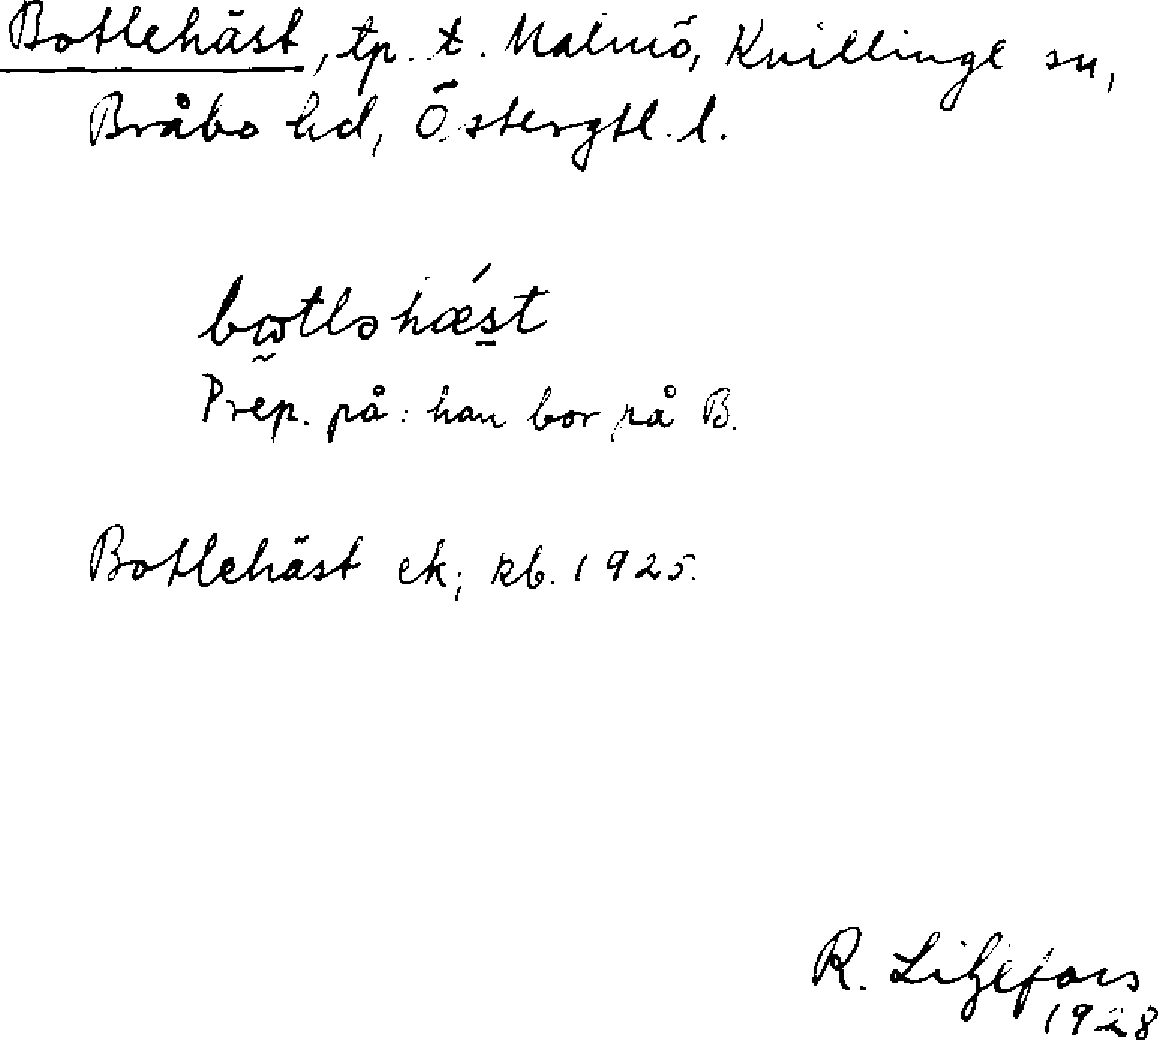 Botlehäst, tp. t. Malmö, Kvillinge sn,
Bråbo hd, Östergtl. l.
Prep. på: han bor på B.
Botlehäst ek; kb. 1925.
R. Liljefors
1928